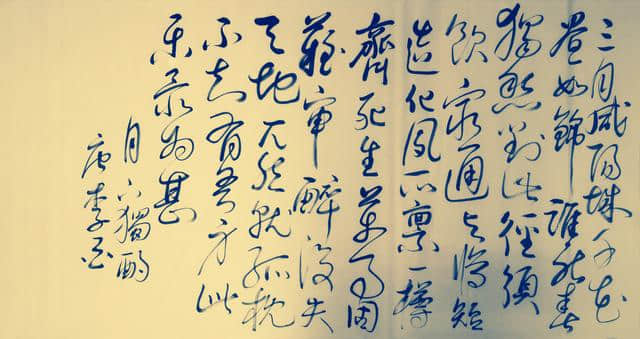 三月咸陽城千花
晝如錦誰能春
獨愁對此徑須
飲窮通与修短
造化夙所稟一樽
齊死生萬事固
難審醉後失
天地兀然就孤枕
不知有吾身此
樂最为甚
月下獨酌
唐李白